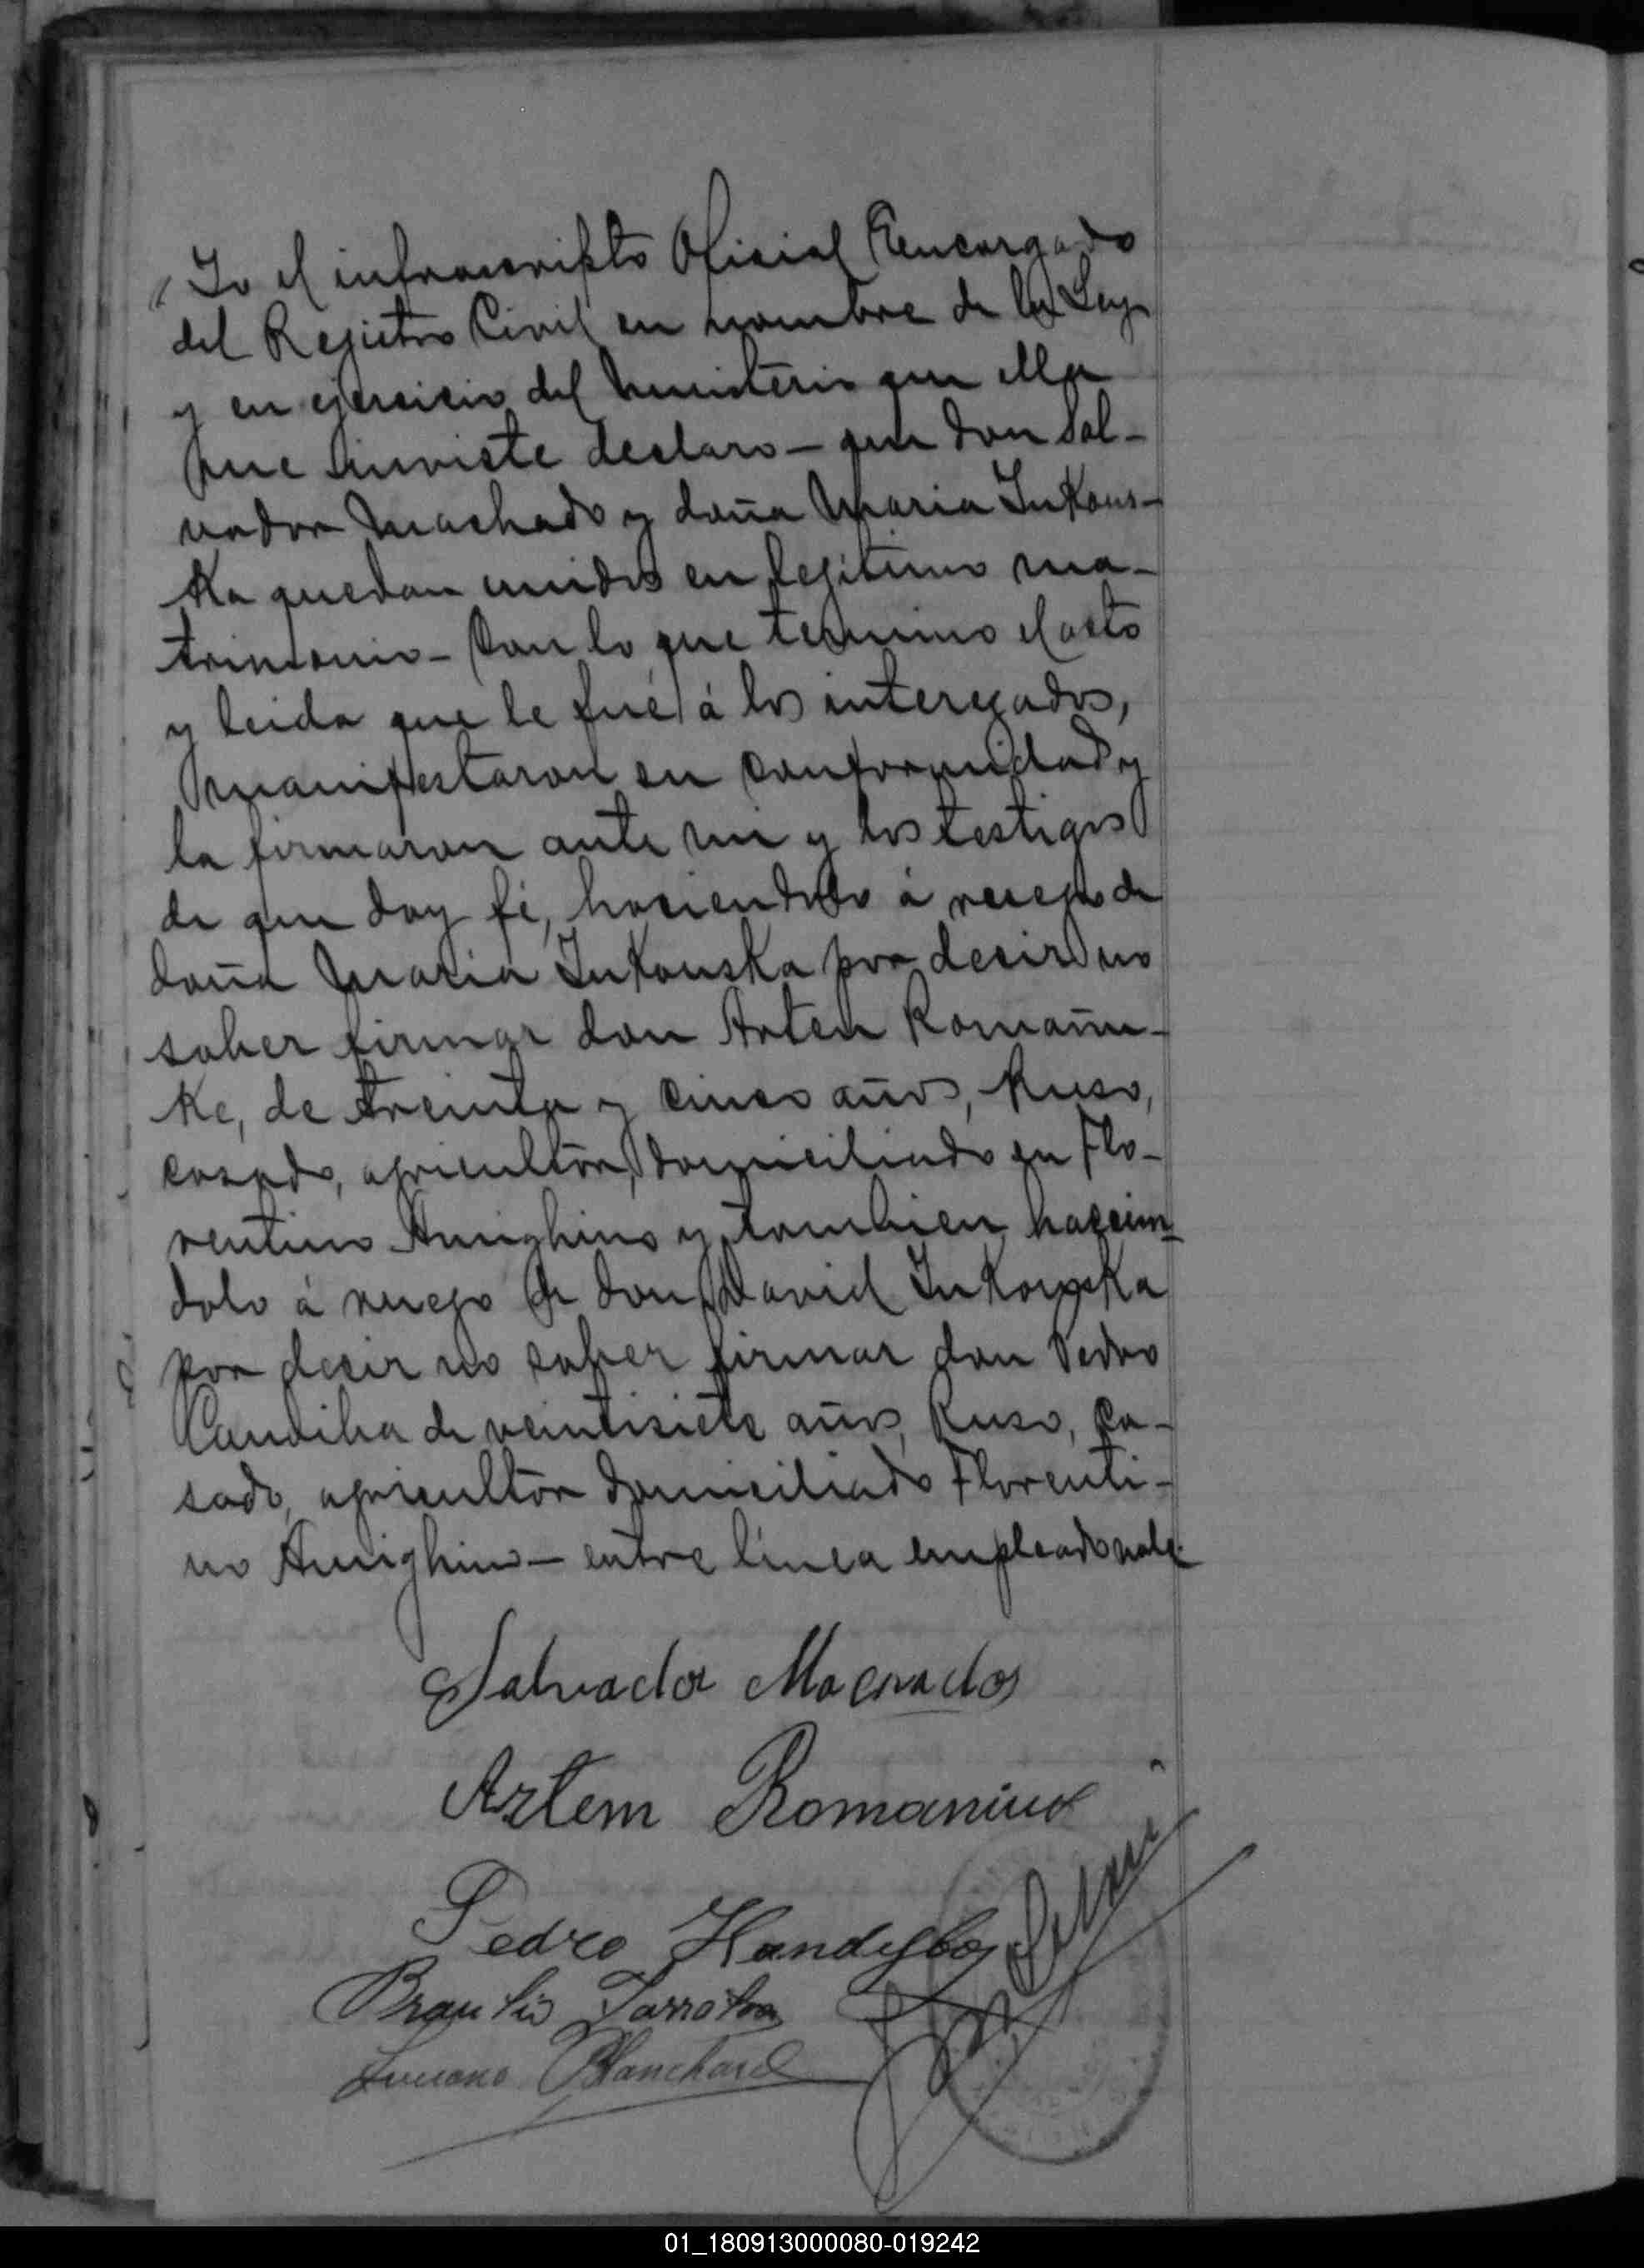 Yo el infrascripto Oficial Encargado
del Rejistro Civil en nombre de la Ley
y en ejersicio del ministerio que ella
me inviste declaro - que don Sal-
vador Machado y doña Maria Jukous-
ka quedan unidos en lejitimo ma-
trimonio - Con lo que termino el acto
y leida que le fué á los interezados,
manifestaron su conformidad y
la firmaron ante mi y los testigos
de que doy fé, haciendolo á ruego de
doña Maria Jukouska por decir no
saber firmar don Arten Romañu-
ke, de treinta y cinco años, Ruso,
casado, agricultor, domiciliado en Flo-
rentino Amighino y tambien haccien-
dolo á ruego de don David Jukouska
por decir no saber firmar don Pedro
Candiba de veintisiete años, Ruso, ca-
sado, agricultor domiciliado Florenti-
no Amighino - entre línea empleado vale
Salvador Machado
Artem Romaniuk
Pedro Handyba
Braulio
Luciano Blanchard
01_180913000080-019242